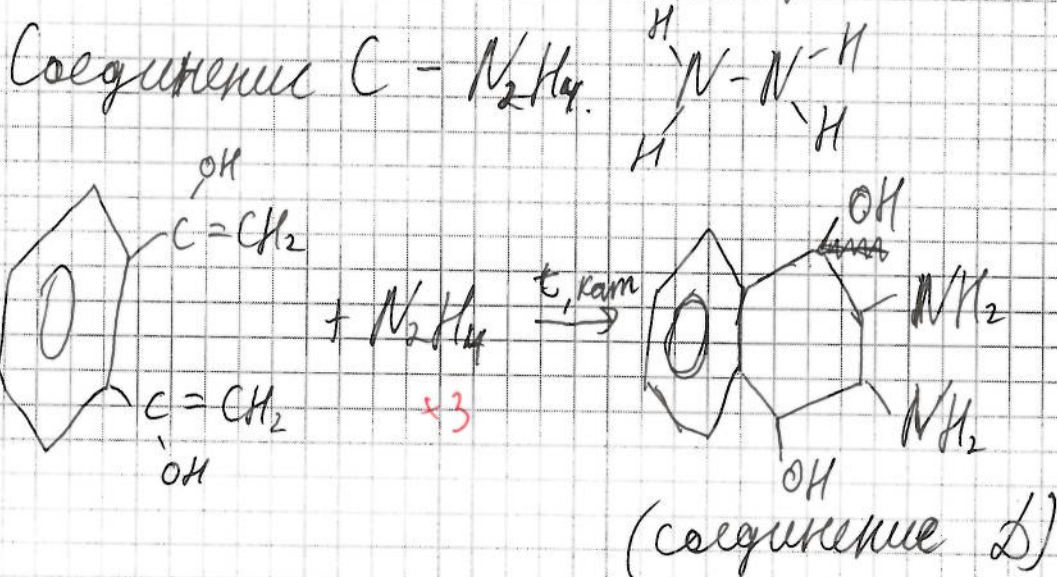 Соединение C - N₂H₄. H H N-N H H
OH
C=CH₂
+ N₂H₄ t, кат →
+3
C=CH₂
OH
OH
NH₂
NH₂
OH
(соединение D)